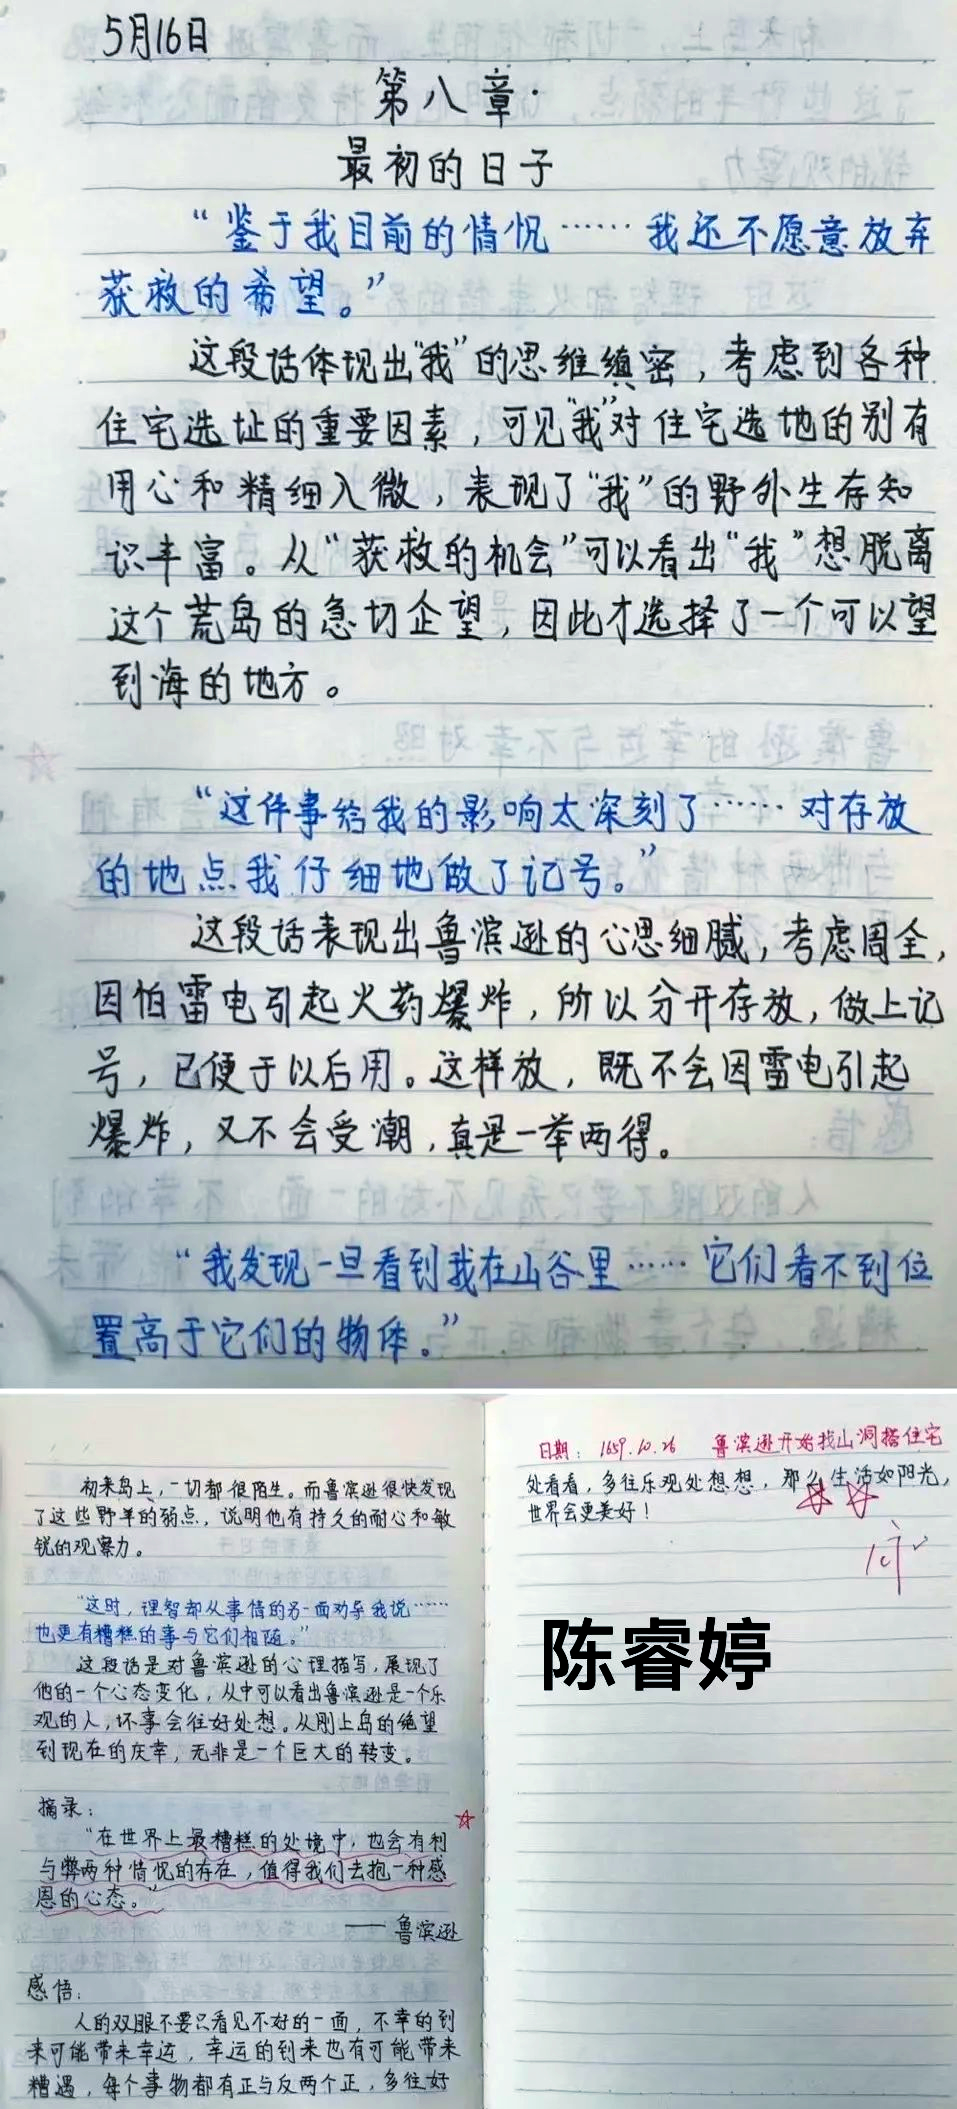 5月16日
第八章·
最初的日子
“鉴于我目前的情况……我还不愿意放弃
获救的希望。”
这段话体现出“我”的思维缜密，考虑到各种
住宅选址的重要因素，可见“我”对住宅选地的别有
用心和精细入微，表现了“我”的野外生存知
识丰富。从“获救的机会”可以看出“我”想脱离
这个荒岛的急切企望，因此才选择了一个可以望
到海的地方。
“这件事给我的影响太深刻了……对存放
的地点我仔细地做了记号。”
这段话表现出鲁滨逊的心思细腻，考虑周全，
因怕雷电引起火药爆炸，所以分开存放，做上记
号，已便于以后用。这样放，既不会因雷电引起
爆炸，又不会受潮，真是一举两得。
“我发现一旦看到我在山谷里……它们看不到位
置高于它们的物体。”
初来岛上，一切都很陌生。而鲁滨逊很快发现
了这些野羊的弱点，说明他有持久的耐心和敏
锐的观察力。
“这时，理智却从事情的另一面劝导我说……
也更有糟糕的事与它们相随。”
这段话是对鲁滨逊的心理描写，展现了
他的一个心态变化，从中可以看出鲁滨逊是一个乐
观的人，坏事会往好处想。从刚上岛的绝望
到现在的庆幸，无非是一个巨大的转变。
摘录：
“在世界上最糟糕的处境中，也会有利
与弊两种情况的存在，值得我们去抱一种感
恩的心态。”
——鲁滨逊
感悟：
人的双眼不要只看见不好的一面，不幸的到
来可能带来幸运，幸运的到来也有可能带来
糟遇，每个事物都有正与反两个正，多往好
日期：1659.10.26 鲁滨逊开始找山洞搭住宅
处看看，多往乐观处想想，那么生活如阳光，
世界会更美好！
陈睿婷